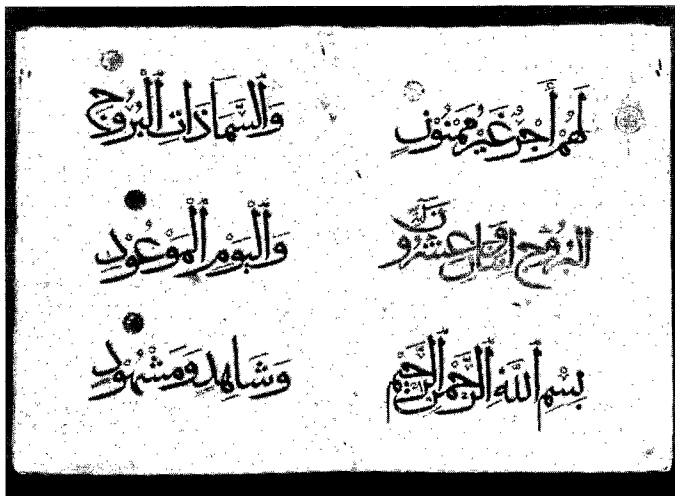 لَهُمْ أَجْرٌ غَيْرُ مَمْنُونٍ
البُرُوجِ اثنتان وعشرون
بِسْمِ اللَّهِ الرَّحْمٰنِ الرَّحِيمِ
وَالسَّمَاءِ ذَاتِ الْبُرُوجِ
وَالْيَوْمِ الْمَوْعُودِ
وَشَاهِدٍ وَمَشْهُودٍ